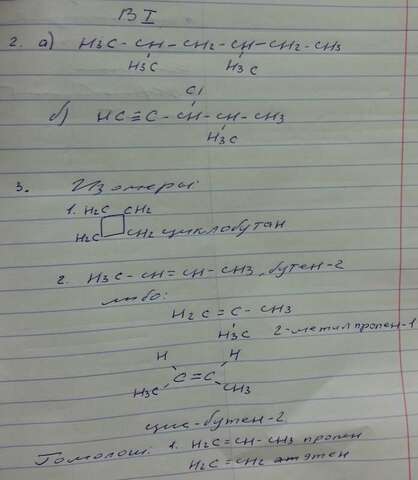 В I
2. а) H3C – CH – CH2 – CH – CH2 – CH3
H3C H3C
Cl
б) HC ≡ C – CH – CH – CH3
H3C
3. Изомеры
1. H2C CH2
H2C CH2 циклобутан
2. H3C – CH = CH – CH3, бутен-2
либо:
H2C = C – CH3
H3C 2-метилпропен-1
H H
C = C
H3C CH3
цис-бутен-2.
Гомологи: 1. H2C = CH – CH3 пропен
H2C = CH2 этен